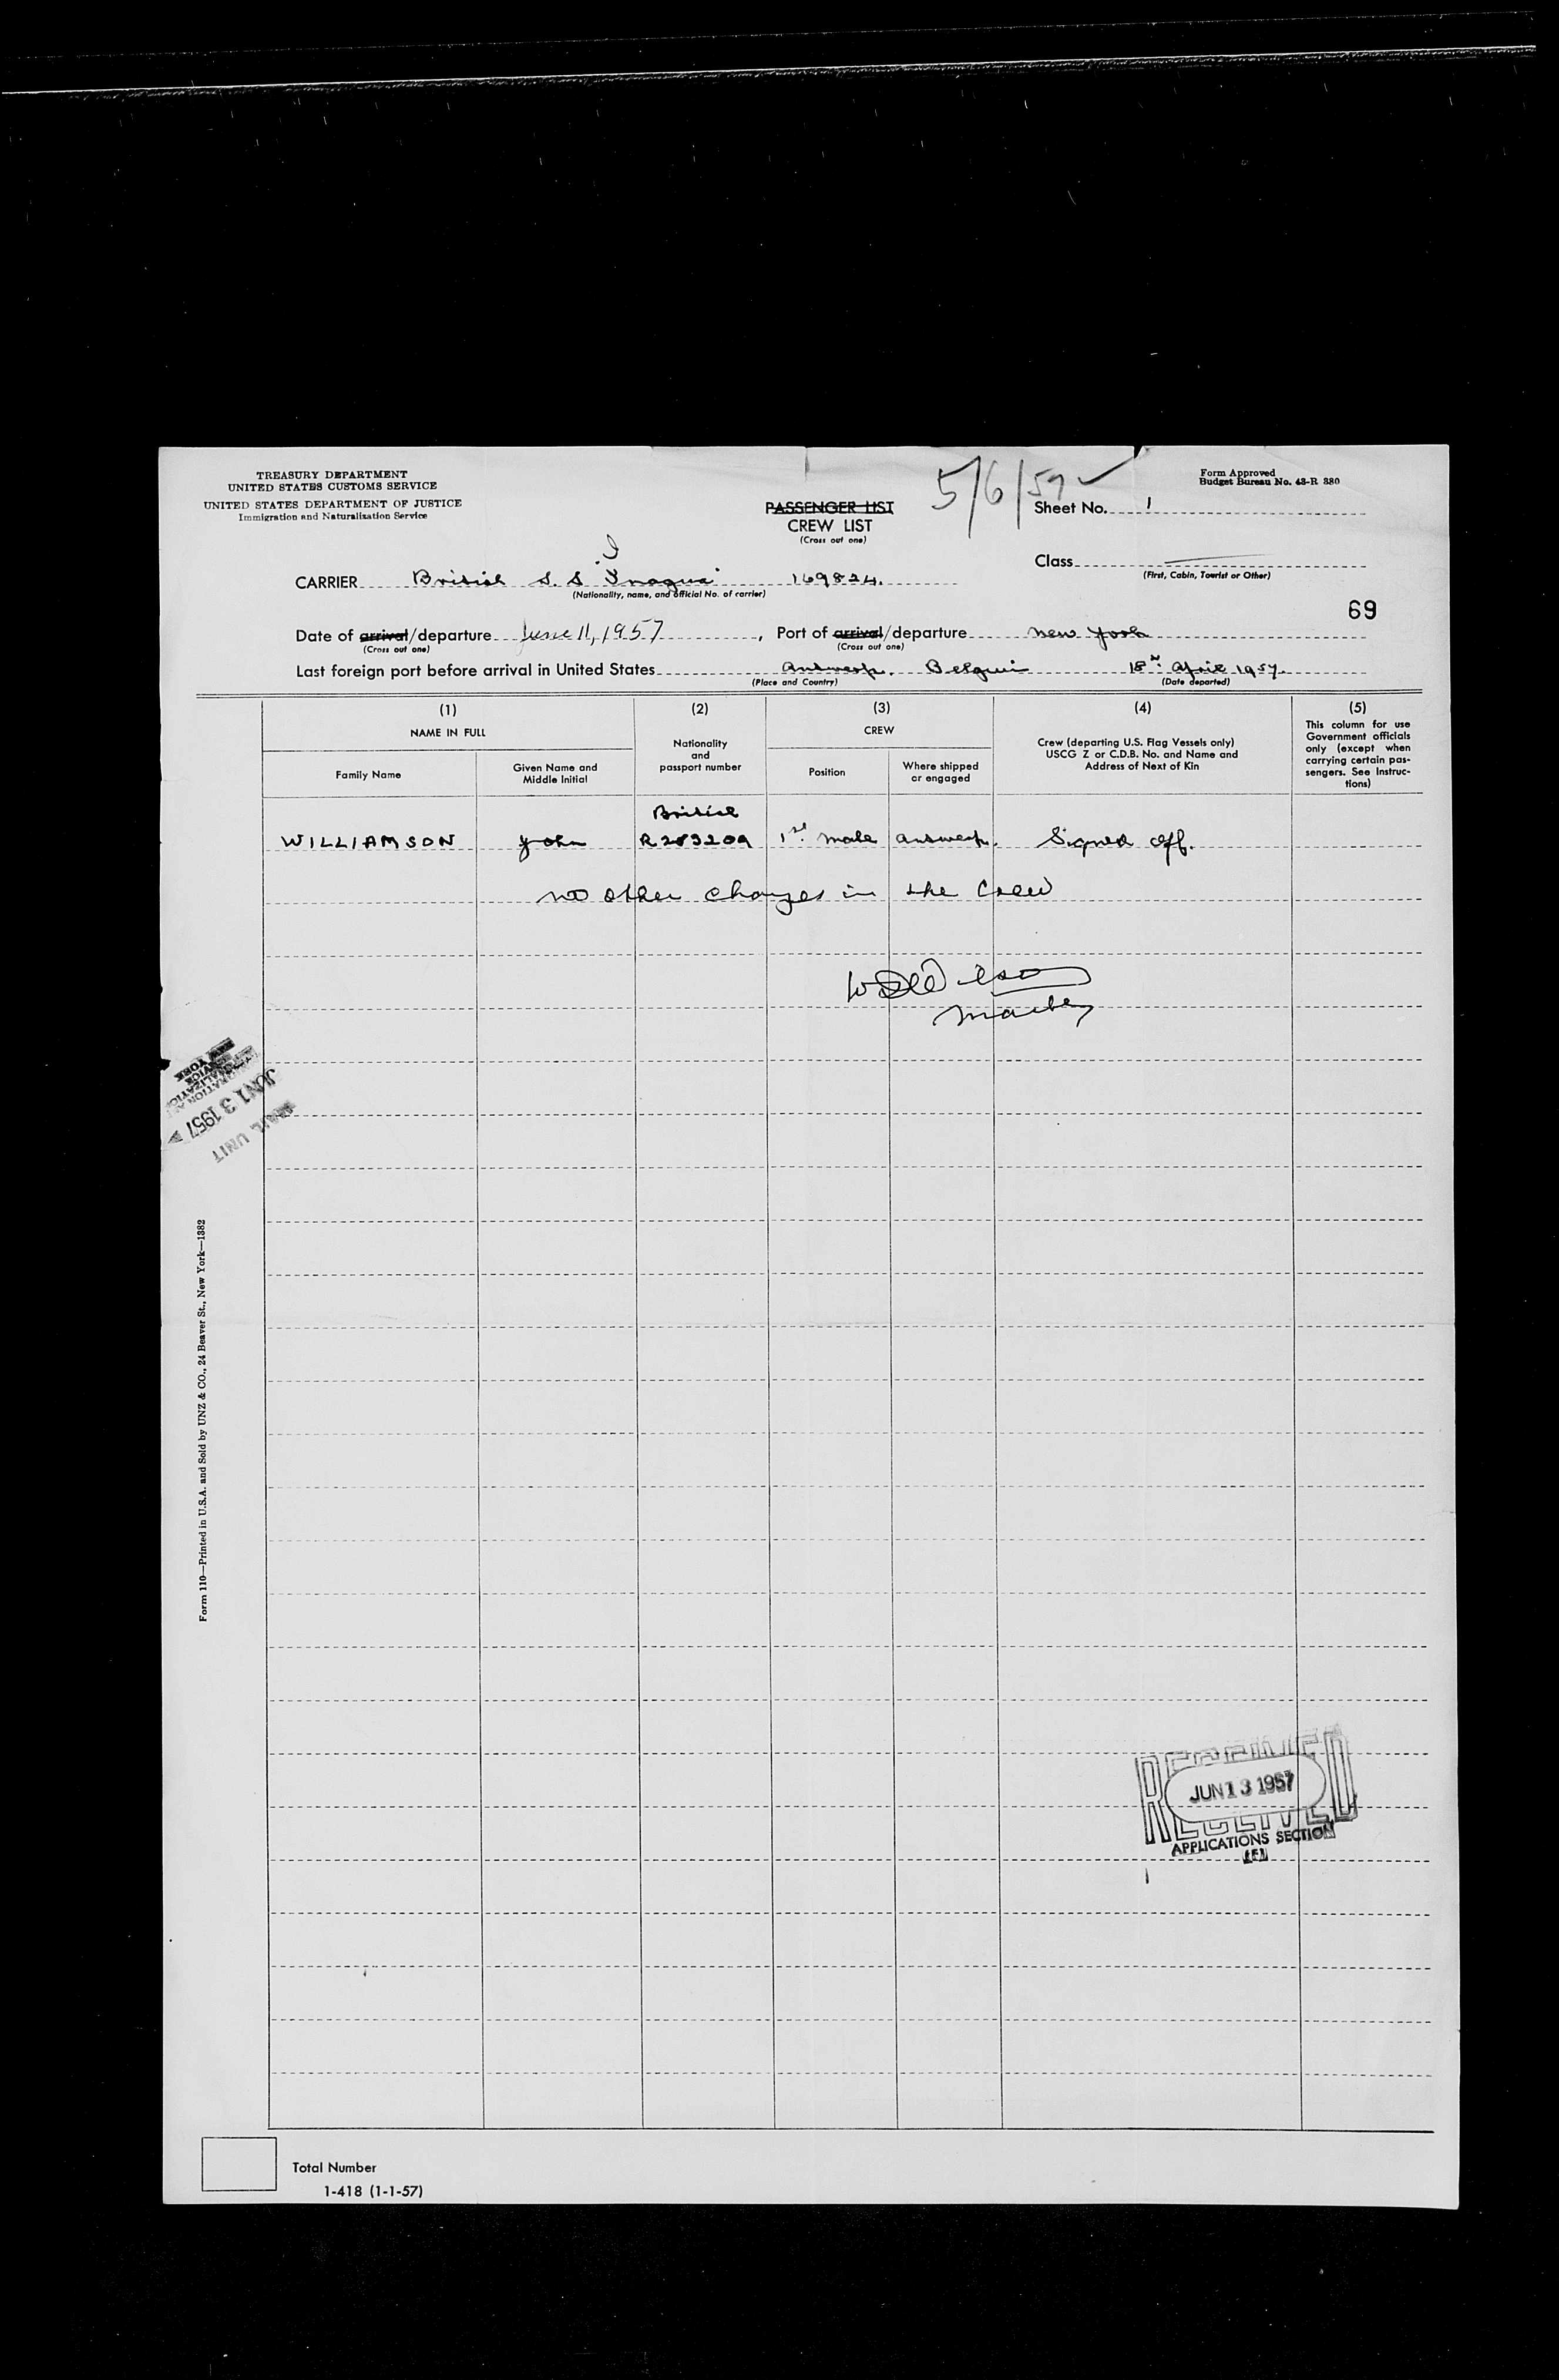 TREASURY DEPARTMENT
UNITED STATES CUSTOMS SERVICE
UNITED STATES DEPARTMENT OF JUSTICE
Immigration and Naturalization Service
PASSENGER LIST
CREW LIST
(Cross out one)
5/6/57 ✓
Form Approved
Budget Bureau No. 43-R 380
Sheet No. 1
Class
(First, Cabin, Tourist or Other)
I
CARRIER British S.S "Inagua" 169824.
(Nationality, name, and official No. of carrier)
69
Date of arrival/departure June 11, 1957, Port of arrival/departure New York
(Cross out one) (Cross out one)
Last foreign port before arrival in United States Antwerp. Belgium 18th April 1957.
(Place and Country) (Date departed)
(1) (2) (3) (4) (5)
NAME IN FULL
Family Name
Given Name and
Middle Initial
Nationality
and
passport number
CREW
Position
Where shipped
or engaged
Crew (departing U.S. Flag Vessels only)
USCG Z or C.D.B. No. and Name and
Address of Next of Kin
This column for use
Government officials
only (except when
carrying certain pas-
sengers. See Instruc-
tions)
British
WILLIAMSON John R283209 1st Mate Antwerp. Signed off.
no other changes in the Crew
Master
NEW YORK
JUN 13 1957
MAIL UNIT
Form 110—Printed in U.S.A. and Sold by UNZ & CO., 24 Beaver St., New York—1382
RECEIVED
JUN 13 1957
RECEIVED
APPLICATIONS SECTION
Total Number
1-418 (1-1-57)